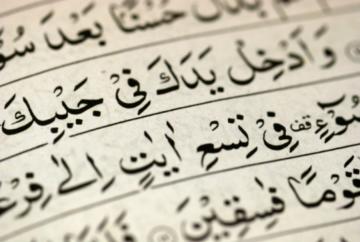 بَدَّلَ حُسْنًا بَعْدَ سُوْٓ
وَاَدْخِلْ يَدَكَ فِىْ جَيْبِكَ
سُوْٓءٍ قف فِىْ تِسْعِ اٰيٰتٍ اِلٰى فِرْعَ
قَوْمًا فٰسِقِيْنَ